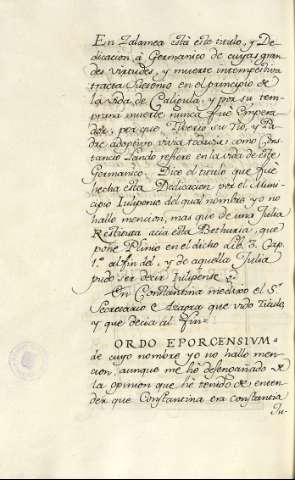 En Zalamea está este titulo, y De-
dicacion, à Germanico de cuyas gran-
des virtudes, y muerte intempestiva
tracta Suetonio en el principio de
la vida de Caligula, y por su tem-
prana muerte nunca fue Empera-
dor, por que Tiberio su tio, y Pa-
dre adoptivo vivia todavia: como
refiere en la vida de este
Germanico. Dice el titulo que fue
hecha esta Dedicacion por el Muni-
cipio Iulipense del qual nombre yo no
hallo mencion, mas que de una Julia
Restituta acia esta Bethuria, que
pone Plinio en el dicho Lib. 3. Cap.
1.º al fin del, y de aquella Julia
pudo ser decir Iulipense
En Constantina me dixo el S.r
Secretario que vido titulo,
y que decia al fin=
ORDO EPORCENSIVM.
de cuyo nombre yo no hallo men-
cion, aunque me hà desengañado de
la opinion que hè tenido de enten-
der que Constantina era constantia
Iu-